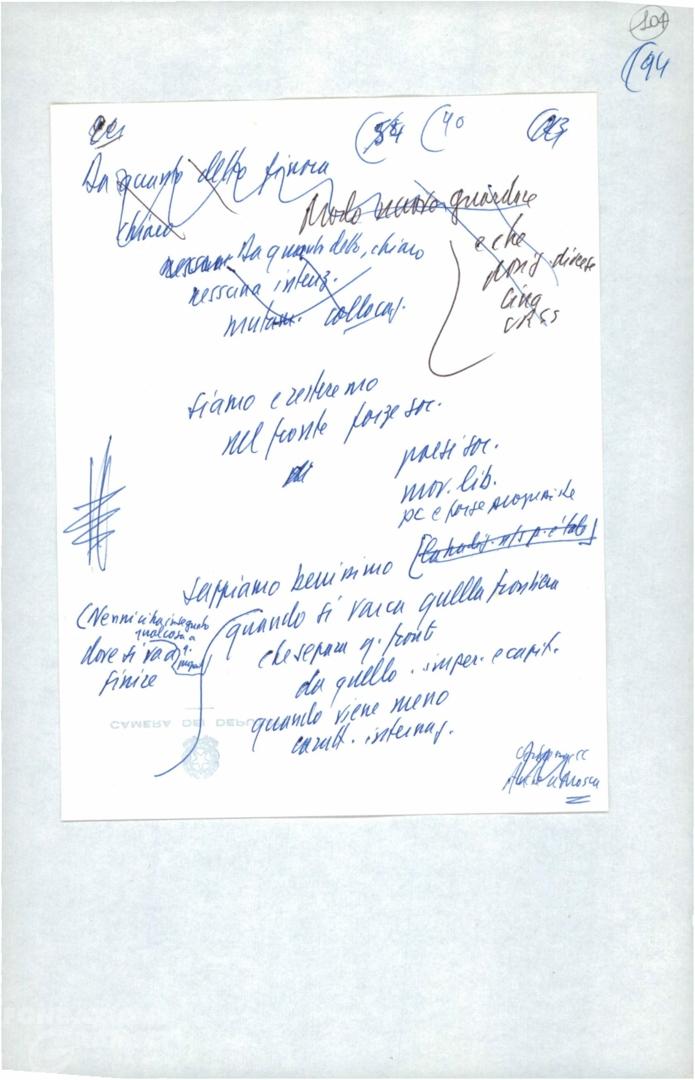 104
(94
(40
Da quanto detto finora
chiaro
Modo nuovo guardare
e che
Da quanto detto, chiaro
nessuna intenz.
mutam. collocaz.
Cina
URSS
siamo e resteremo
nel fronte forze soc.
paesi soc.
mov. lib.
pc e forze
sappiamo benissimo
(Nenni ci ha insegnato
qualcosa a
dove si va a
finire
quando si varca quella frontiera
che separa q. fronti
da quello imper. e capit.
quando viene meno
caratt. internaz.
CAMERA DEI DEPU